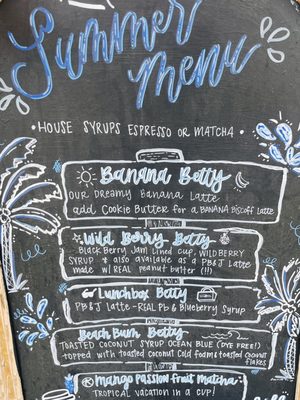 Summer Menu
• HOUSE SYRUPS ESPRESSO OR MATCHA •
Banana Betty
OUR Dreamy Banana Latte
add Cookie Butter for a BANANA BISCOFF Latte
Wild Berry Betty
Black Berry Jam Lined cup, WILDBERRY
SYRUP * also available as a PB&J Latte
made w/ REAL peanut butter (!!!)
Lunchbox Betty
PB&J Latte - REAL Pb & Blueberry Syrup
Beach Bum Betty
TOASTED COCONUT SYRUP OCEAN BLUE (DYE FREE!)
topped with toasted coconut Cold foam & toasted coconut
flakes
Mango Passion Fruit Matcha:
TROPICAL VACATION IN A CUP!